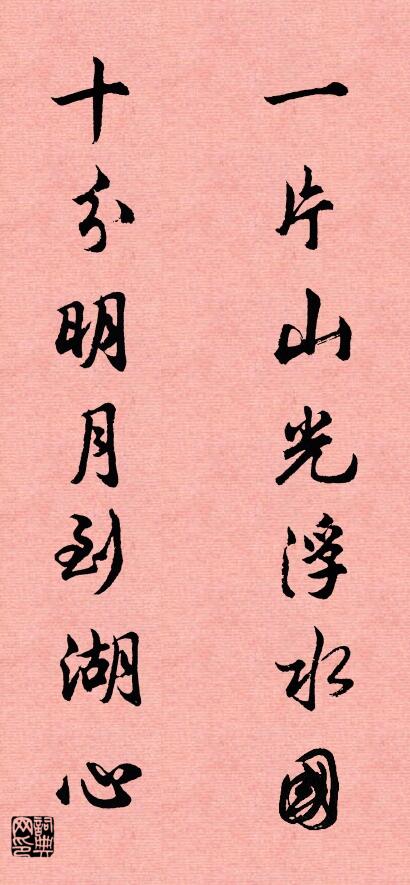 一片山光浮水國
十分明月到湖心
詞典网印